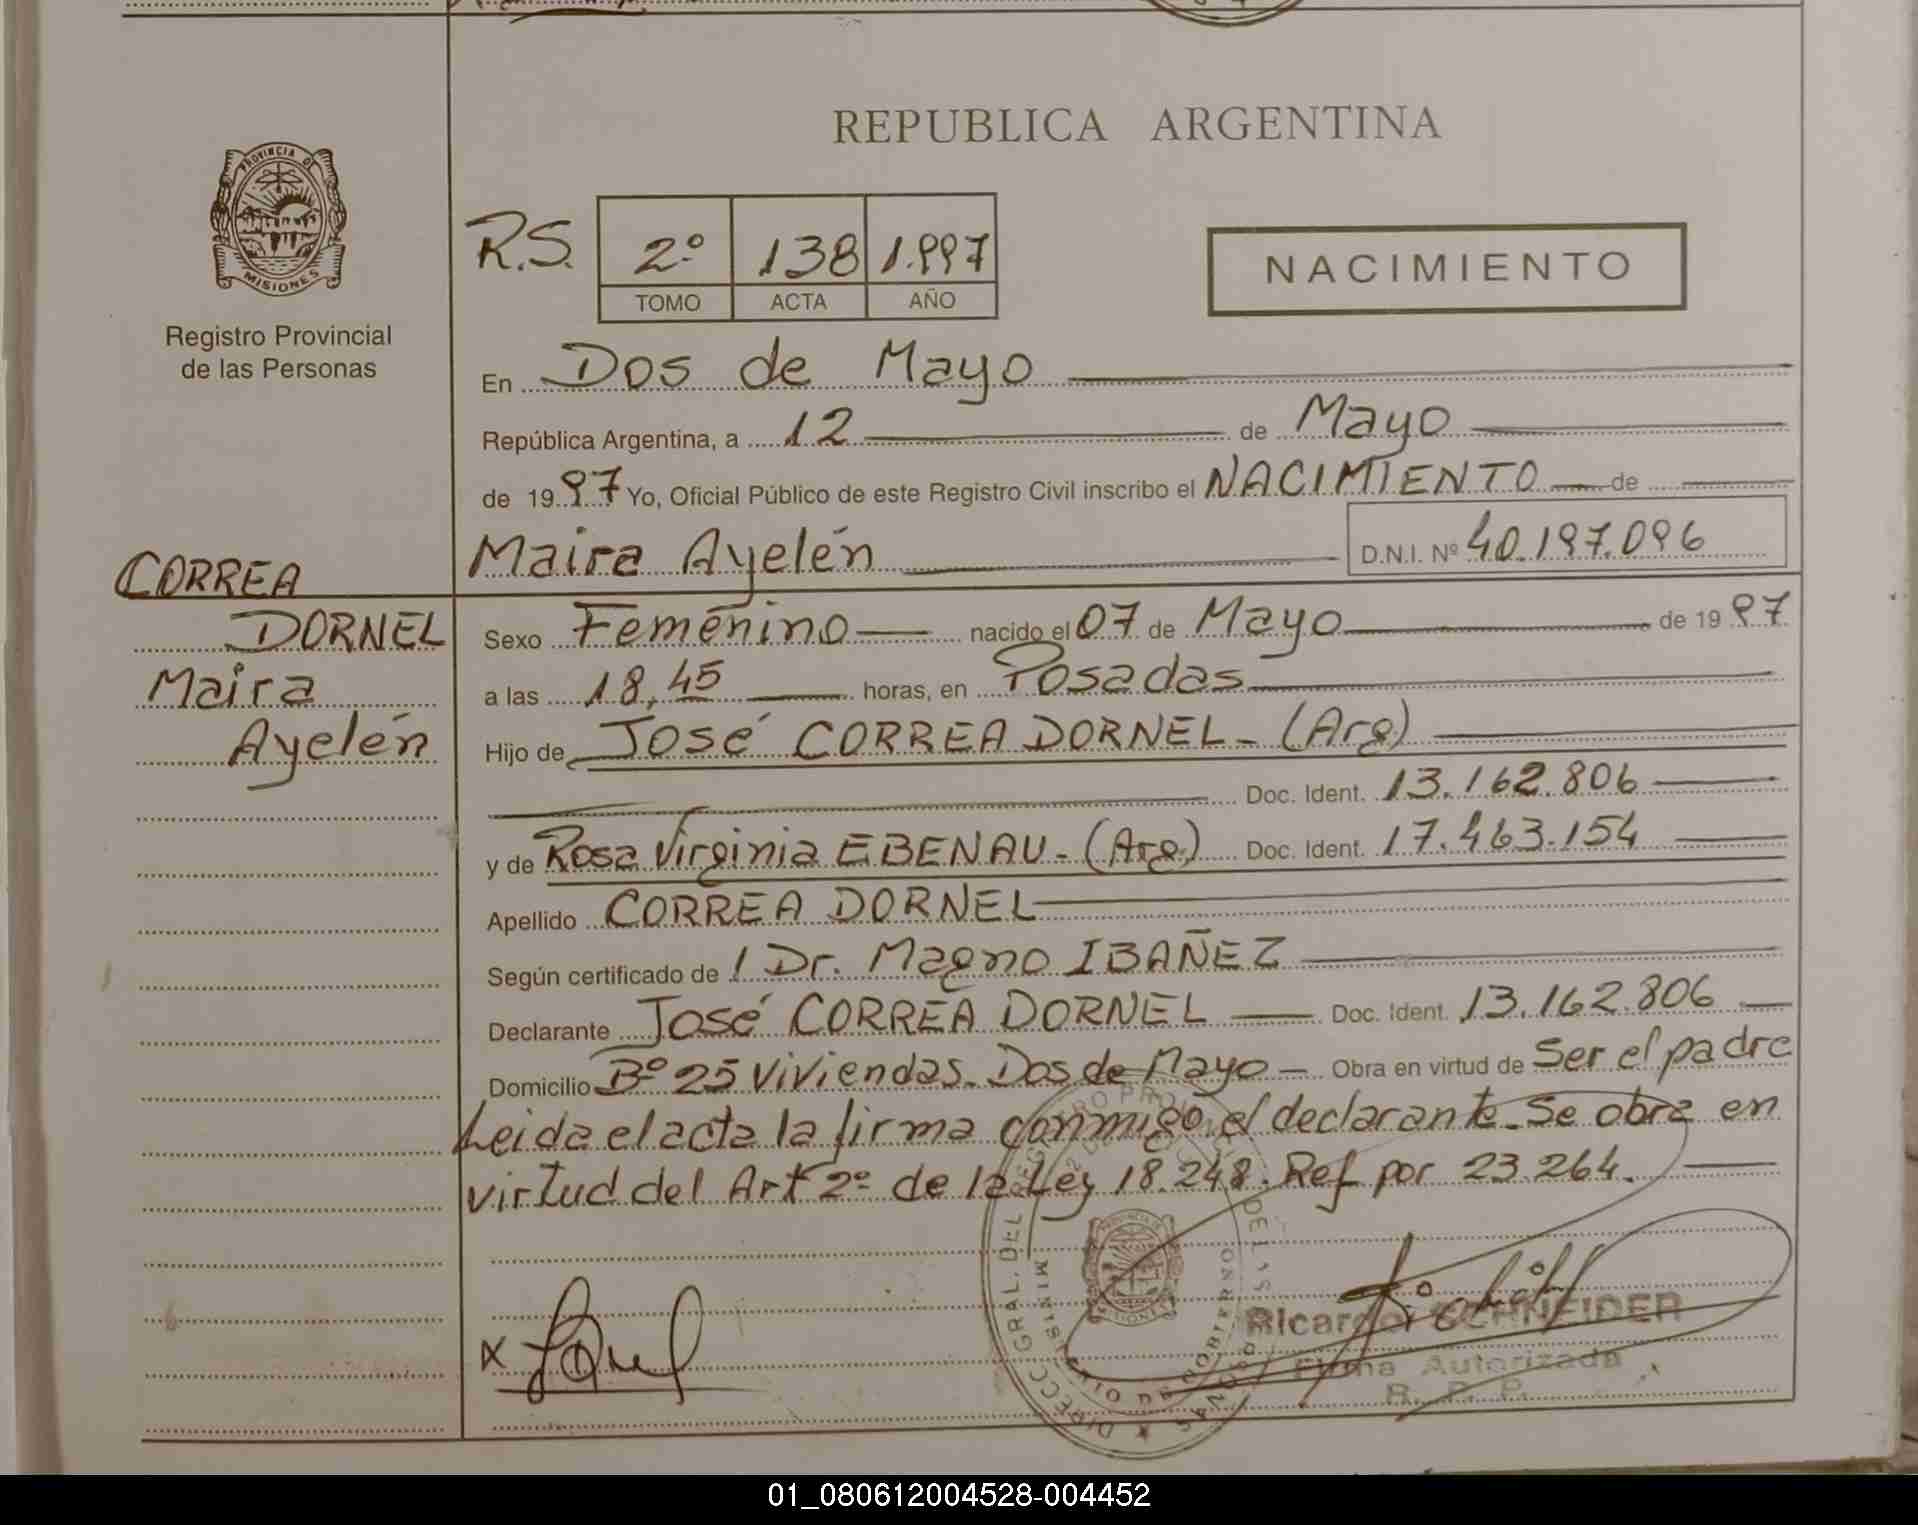 REPUBLICA ARGENTINA
PROVINCIA DE
MISIONES
Registro Provincial
de las Personas
R.S. 2º 138 1.997
TOMO ACTA AÑO
NACIMIENTO
En Dos de Mayo
República Argentina, a 12 de Mayo
de 1997 Yo, Oficial Público de este Registro Civil inscribo el NACIMIENTO de
Maira Ayelén D.N.I. Nº 40.197.096
CORREA
DORNEL
Maira
Ayelén
Sexo Femenino nacido el 07 de Mayo de 1997
a las 18,45 horas, en Posadas
Hijo de José CORREA DORNEL - (Arg)
Doc. Ident. 13.162.806
y de Rosa Virginia EBENAU - (Arg) Doc. Ident. 17.463.154
Apellido CORREA DORNEL
Según certificado de 1 Dr. Magno IBAÑEZ
Declarante José CORREA DORNEL Doc. Ident. 13.162.806
Domicilio Bº 25 Viviendas. Dos de Mayo - Obra en virtud de Ser el padre
Leida el acta la firma conmigo el declarante. Se obra en
virtud del Art 2º de la Ley 18.248. Ref por 23.264.
x
DIRECC. GRAL. DEL REGISTRO PROVINCIAL DE LAS PERSONAS
MINISTERIO DE GOBIERNO
Ricardo SCHNEIDER
Firma Autorizada
R. P. P.
01_080612004528-004452